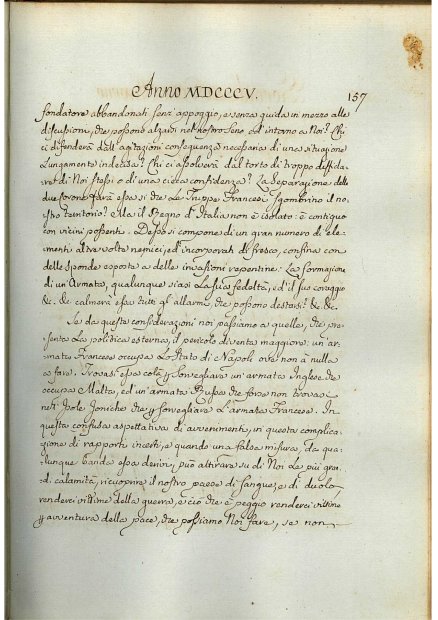 Anno MDCCCV.
157
fondatore abbandonati senz' appoggio, e senza guida in mezzo alle
discussioni, che possono alzarsi nel nostro seno ed intorno a Noi? Chi
ci difenderà dall'agitazioni conseguenza necessaria di una situazione
lungamente indecisa? Chi ci assolverà dal torto di troppo diffida-
re di Noi stessi o di una cieca confidenza? La separazione delle
due corone farà essa si che le Truppe Francesi sgombrino il no-
stro territorio? Ma il Regno d'Italia non è isolato: è contiguo
con vicini possenti. Desso si compone di un gran numero di ele-
menti altre volte nemici, ed incorporati di fresco, confina con
delle sponde esposte a delle invasioni repentine: La formazione
di un Armata, qualunque siasi la sua fedeltà, ed il suo coraggio
&c. &c. calmerà essa tutti gl' allarmi, che possono destarsi? &c. &c.
Se da queste considerazioni noi passiamo a quelle, che pre-
senta la politica esterna, il pericolo diventa maggiore: un' ar-
mata Francese occupa lo Stato di Napoli ove non à nulla
a fare. Trovasi essa colà per sorvegliare un' armata Inglese che
occupa Malta, ed un' armata Russa che forse non trovasi
nell' Isole Joniche che per sorvegliare l'armata Francese. In
questa confusa aspettativa di avvenimenti, in questa complica-
zione di rapporti incerti, e quando una falsa misura, da qua-
lunque banda essa derivi, può attirare su di Noi le più gran-
di calamità, ricuoprire il nostro paese di sangue, e di duolo,
renderci vittime della guerra, e ciò che è peggio renderci vittime
per avventura della pace, che possiamo Noi fare, se non